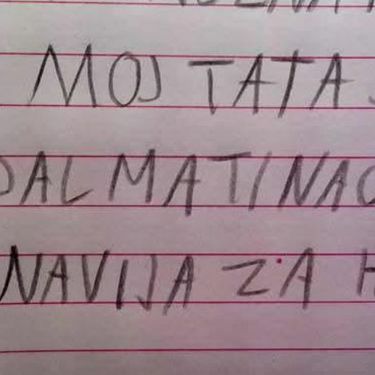 MOJ TATA
DALMATINAC
NAVIJA ZA H